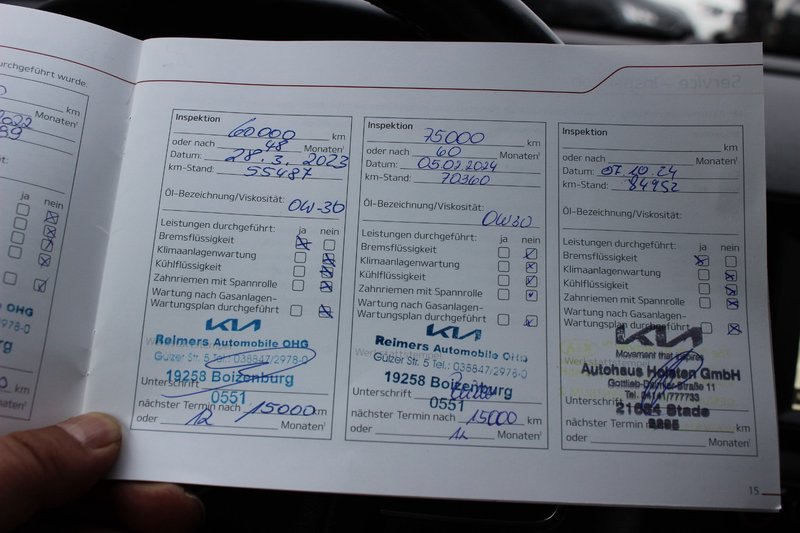 urchgeführt wurde.
km
Monaten¹
2022
89
ja nein
HG
8-0
km
Monaten¹
Inspektion
60000 km
oder nach 48 Monaten¹
Datum: 28.3.2023
km-Stand: 55487
Öl-Bezeichnung/Viskosität:
0W-30
Leistungen durchgeführt: ja nein
Bremsflüssigkeit
Klimaanlagenwartung
Kühlflüssigkeit
Zahnriemen mit Spannrolle
Wartung nach Gasanlagen-
Wartungsplan durchgeführt
KIA
Reimers Automobile OHG
Gülzer Str. 5 Tel.: 038847/2978-0
19258 Boizenburg
Unterschrift
0551
nächster Termin nach 15000 km
oder 12 Monaten¹
Inspektion
75000 km
oder nach 60 Monaten¹
Datum: 05.02.2024
km-Stand: 70360
Öl-Bezeichnung/Viskosität:
0W30
Leistungen durchgeführt: ja nein
Bremsflüssigkeit
Klimaanlagenwartung
Kühlflüssigkeit
Zahnriemen mit Spannrolle
Wartung nach Gasanlagen-
Wartungsplan durchgeführt
KIA
Reimers Automobile OHG
Gülzer Str. 5 Tel.: 038847/2978-0
19258 Boizenburg
Unterschrift
0551
nächster Termin nach 15000 km
oder 12 Monaten¹
Inspektion
km
oder nach Monaten¹
Datum: 07.10.24
km-Stand: 84952
Öl-Bezeichnung/Viskosität:
Leistungen durchgeführt: ja nein
Bremsflüssigkeit
Klimaanlagenwartung
Kühlflüssigkeit
Zahnriemen mit Spannrolle
Wartung nach Gasanlagen-
Wartungsplan durchgeführt
KIA
Movement that inspires
Autohaus Holsten GmbH
Gottlieb-Daimler-Straße 11
Tel. 04141/777733
Unterschrift
21684 Stade
nächster Termin nach km
oder Monaten¹
15